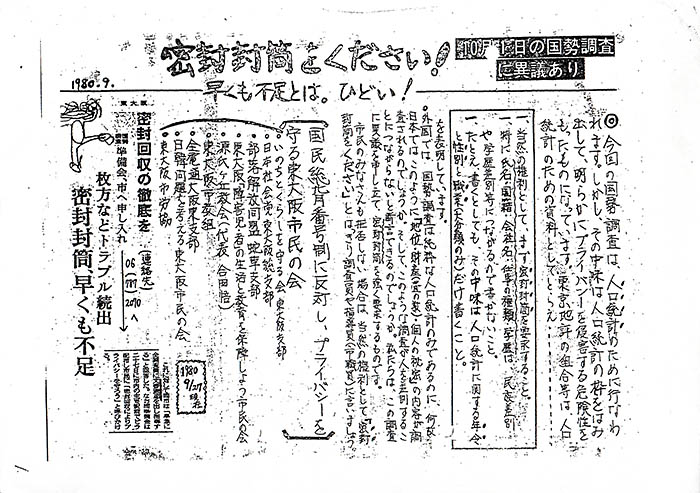 10月1日の国勢調査
に異議あり
密封封筒をください!
早くも不足とは。ひどい!
1980.9.
◎今回の国勢調査は、人口統計のために行なわ
れます。しかし、その中味は人口統計の枠をはみ
出して、明らかにプライバシーを侵害する危険性を
もったものになっています。東京地評の組合等は、人口
統計のための資料としてとらえ……
一、当然の権利として、まず密封封筒を要求すること。
一、特に氏名・国籍・会社名・仕事の種類・学歴は、民族差別
や学歴差別等につながるので書かせないこと。
一、たとえ書くとしても、その中味は人口統計に関する年令
と性別と職業(大分類のみ)だけ書くこと。
を表明しています。
外国では、国勢調査は純粋な人口統計のみであるのに、何故
日本ではこのように地位・財産(室の数)・個人の秘密の内容が調
査されるのでしょうか。そして、このような調査が人々を差別するこ
とにつながらないと断言できるのでしょうか。私たちは、この調査
に異議を申し立て、密封封筒を強く要求するものです。
市民のみなさんも拒否しない場合は、当然の権利として「密封
封筒をください」とはっきり調査員や指導員(市職)に言いましょう。
国民総背番号制に反対し、プライバシーを
守る東大阪市民の会
いのちとくらしを守る会 東大阪支部
日本社会党 東大阪総支部
部落解放同盟 蛇草支部
東大阪「障害児・者の生活と教育を保障しよう」市民の会
源氏ヶ丘教会(代表 合田悟)
東大阪市教組
全電通大阪東支部
日韓問題を考える東大阪市民の会
東大阪市労協
1980
9/27
現在
(連絡先)
06(787)2010へ
東大阪
密封回収の徹底を
準備会、市へ申し入れ
枚方などトラブル続出
密封封筒、早くも不足